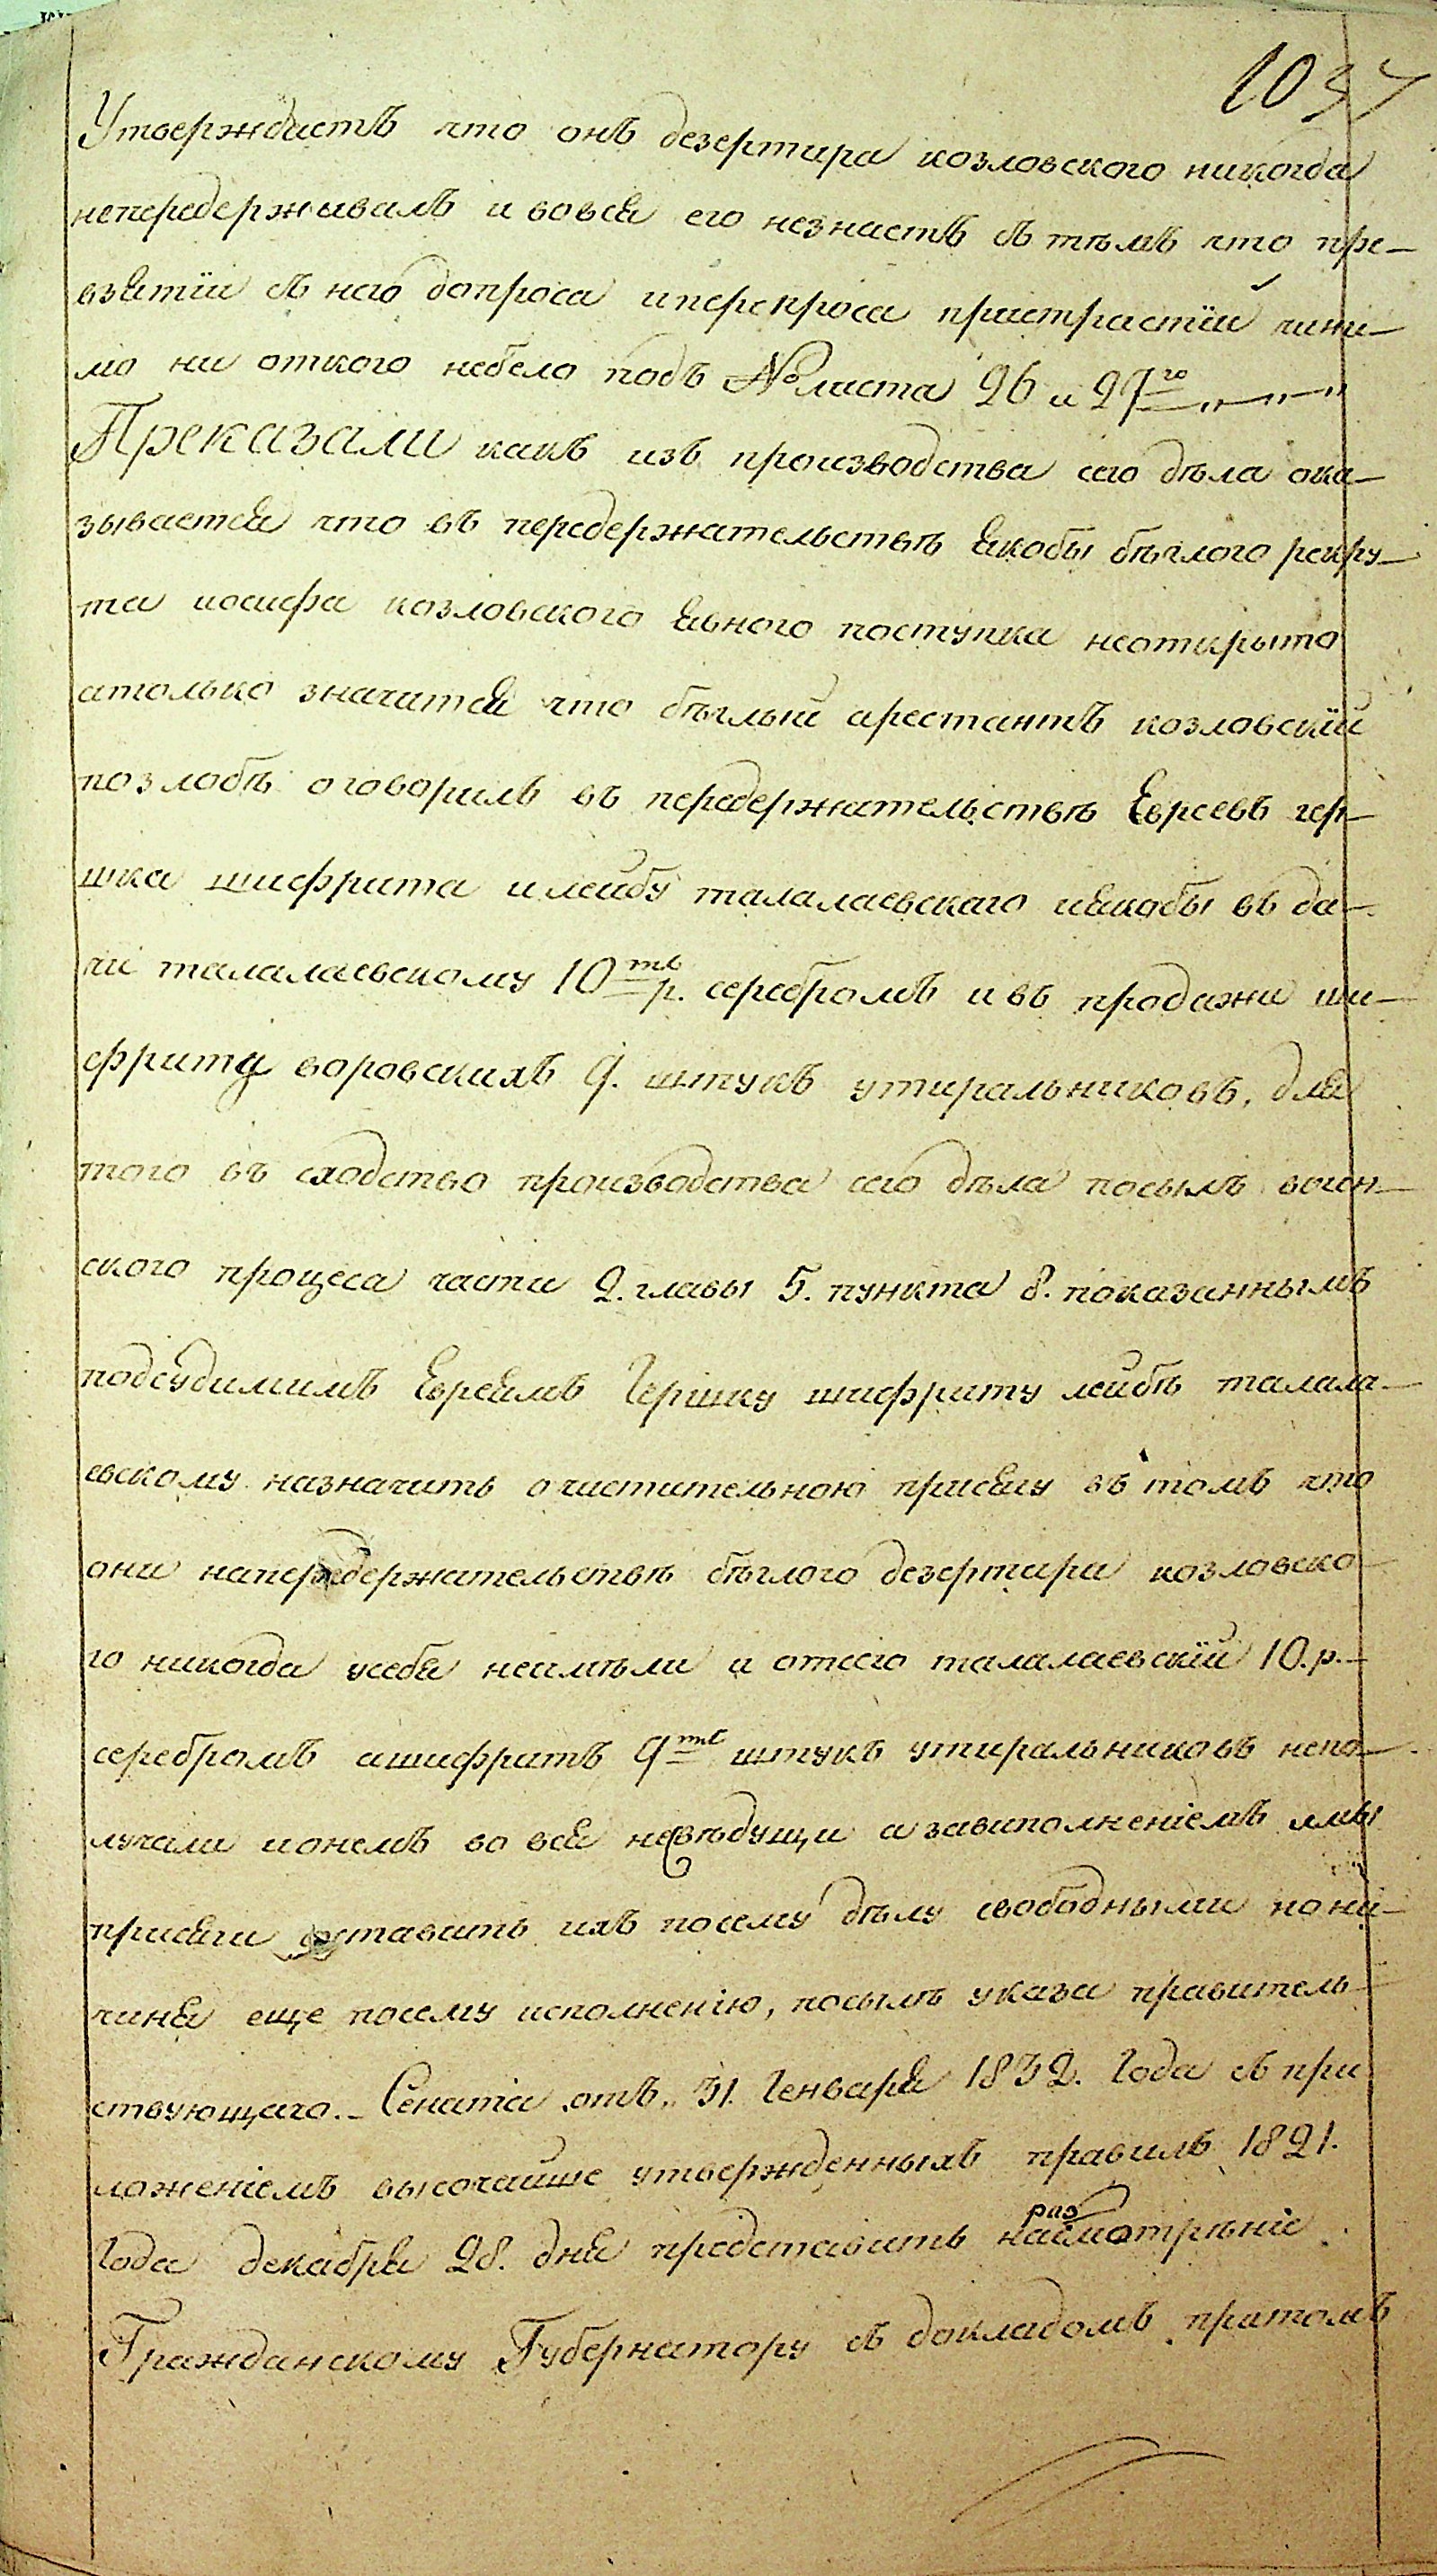 1037
Утверждаетъ что онъ дезертира козловского никогда
непередерживалъ и вовся его незнаетъ съ тѣмъ что при-
взятіи съ него допроса иперепроса пристрастіи чини-
мо ни откого небело подъ № листа 26 и 27го
Преказали какъ изъ производства сего дѣла ока-
зывается что въ передержательствѣ якобы бѣглого рекру-
та иосифа козловского явного поступка неоткрыто
атолько значится что бѣглый арестантъ козловскій
позлобѣ оговорилъ въ передержательствѣ Евреевъ гер-
шка шифрита илейбу талалаевскаго иякобы въ да-
чи талалаевскому 10ть р. серебромъ ивъ продажи ши-
фриту воровскихъ 9. штукъ утиральниковъ, для
того въ сходство производства сего дѣла посылъ воен-
ского процеса части 2. главы 5. пункта 8. показаннымъ
подсудимимъ Евреямъ Гершку шифриту лейбѣ талала-
евскому назначить очистительною присягу въ томъ что
они напередержательствѣ бѣглого дезертира козловско-
го никогда усебя неимѣли и отсего талалаевскій 10. р.
серебромъ ашифритъ 9ть штукъ утиральниковъ непо-
лучали ионемъ во вся невѣдущи а завиполненіемъ ими
присяги оставить ихъ посему дѣлу свободными нони-
чиня еще посему исполненію, посылъ указа правитель-
ствующаго Сената отъ 31. Генваря 1832. Года съ при
ложеніемъ высочайше утвержденныхъ правилъ 1821.
Года декабря 28. дня представить на разсмотрѣніе
Гражданскому Губернатору съ докладомъ притомъ